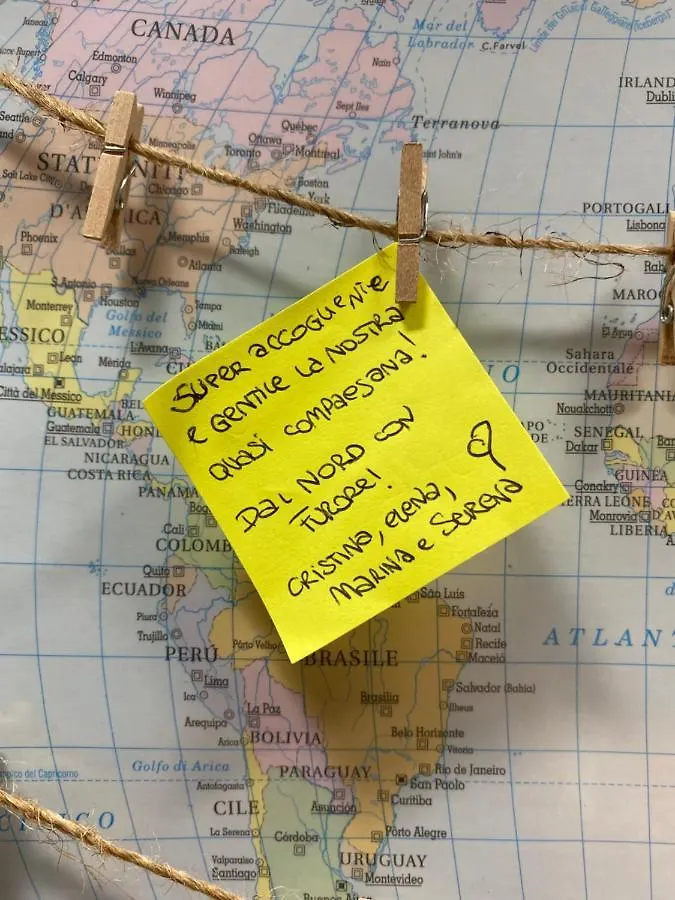 SUPER ACCOGLIENTE
e GENTILE LA NOSTRA
QUASI COMPAESANA!
DAL NORD CON
FURORE!
CRISTINA, ELENA,
MARINA e SERENA
CANADA
Mar del
Labrador
C.Farvel
Edmonton
Calgary
Nain
Winnipeg
Sept Iles
IRLAND
Dubli
Seattle
Québec
Ottawa
Terranova
Toronto
Montréal
Saint John's
Salt Lake City
Chicago
Boston
York
Filadelfia
Washington
PORTOGALL
Lisbona
Phoenix
Memphis
Raleigh
Dallas
Atlanta
Rab
S.Antonio
New Orleans
Houston
MAROC
Monterrey
Golfo del
Messico
Tampa
Miami
El Ayun
ESSICO
Leon
L'Avana
Sahara
Occidentale
Mérida
Città del Messico
MAURITANIA
Nouakchott
BEL
GUATEMALA
Guatemala
HON
SENEGAL
Dakar
EL SALVADOR
NICARAGUA
COSTA RICA
GUINEA
Conakry
PANAMA
ERRA LEONE
Monrovia
LIBERIA
Cali
COLOMB
Quito
ECUADOR
São Luís
Fortaleza
Piura
Natal
Trujillo
Recife
Pôrto Velho
Maceió
ATLANT
PERÙ
BRASILE
Lima
Ica
Salvador (Bahia)
Brasilia
Ilheus
La Paz
Arequipa
Belo Horizonte
Arica
BOLIVIA
Vitoria
Golfo di Arica
PARAGUAY
Rio de Janeiro
San Paolo
Antofagasta
Asunción
Curitiba
CILE
La Serena
Córdoba
Pôrto Alegre
Valparaiso
Santiago
URUGUAY
Montevideo